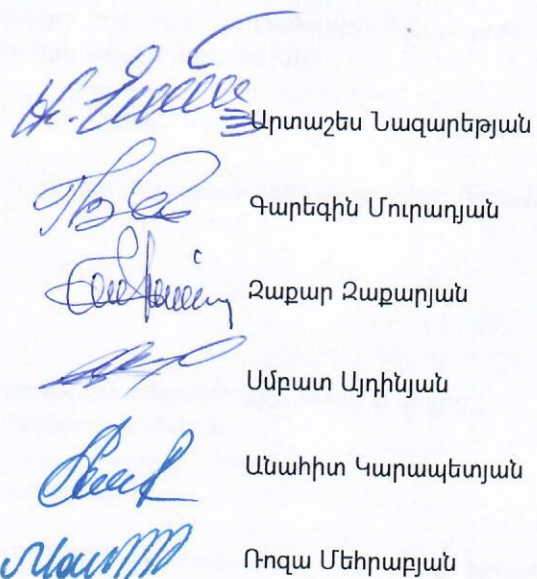 Արտաշես Նազարեթյան
Գարեգին Մուրադյան
Զաքար Զաքարյան
Սմբատ Այդինյան
Անահիտ Կարապետյան
Ռոզա Մեհրաբյան